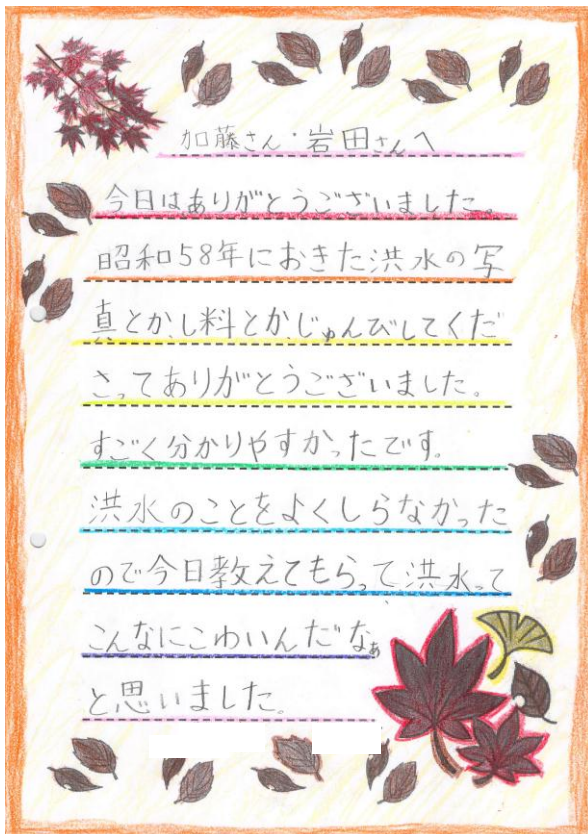 加藤さん・岩田さんへ
今日はありがとうございました。
昭和58年におきた洪水の写
真とか、し料とか、じゅんびしてくだ
さってありがとうございました。
すごく分かりやすかったです。
洪水のことをよくしらなかった
ので今日教えてもらって、洪水って
こんなにこわいんだなぁ
と思いました。